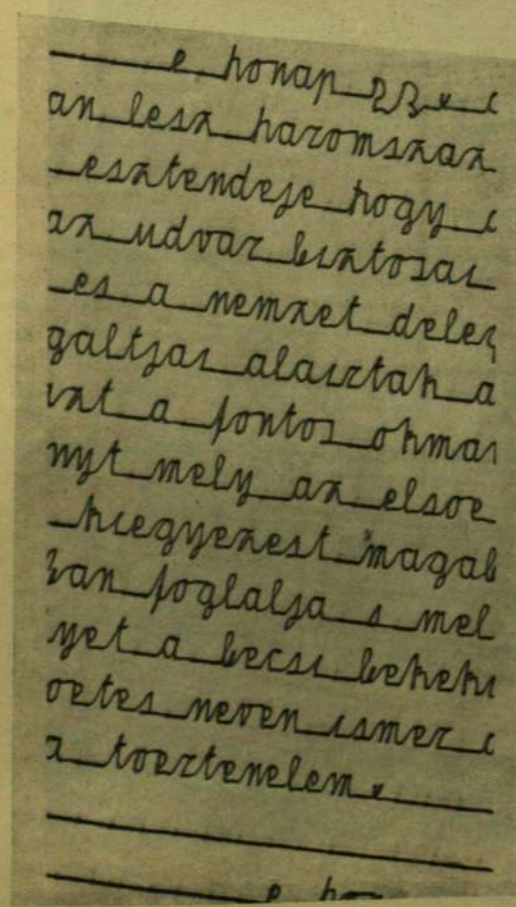 e honap 23 x a
an lesz haromszaz
esztendeje hogy a
az udvar biztosai
es a nemzet deleg
galtjai alairtak a
izt a fontos okmai
nyt mely az elsoe
kiegyezest magab
ban foglalja s mel
yet a becsi bekeko
oetes neven ismer a
z toertenelem x
e ho